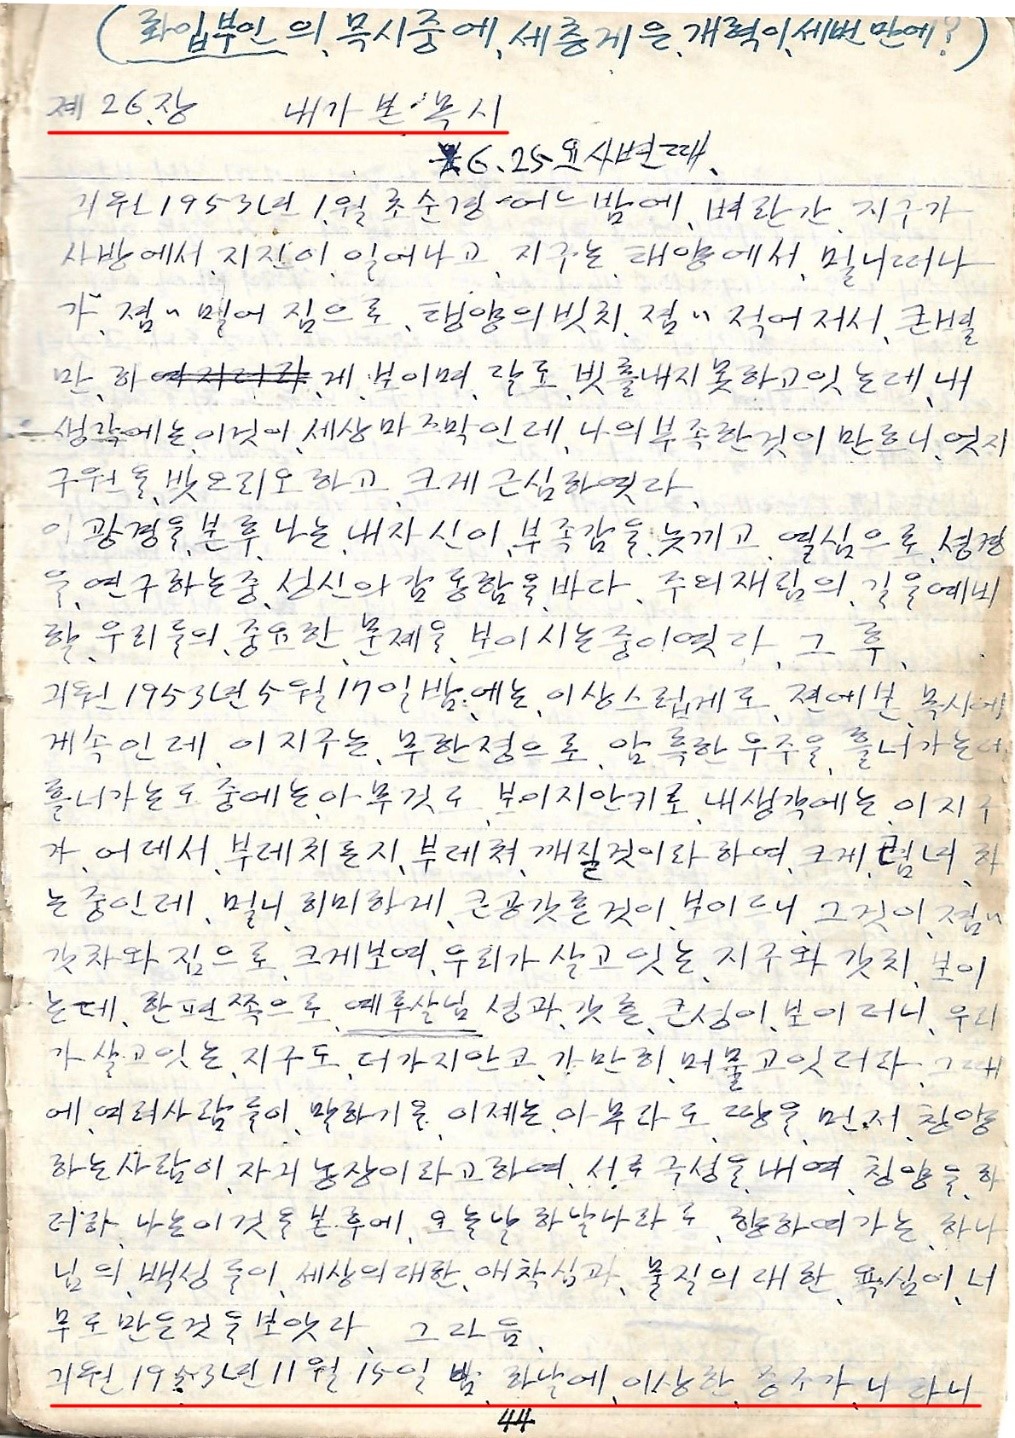 (화입부인의, 묵시중에, 세층계은, 개력이, 세번만에?)
제 26.장 내가 본·묵시
6.25 요사변때.
기원 1953년 1.월 초순경 어느 밤에, 벼란간, 지구가
사방에서, 지진이, 일어나고, 지구는, 태양에서, 밀니떠나
가, 졈〃 멀어 짐으로, 탱양의 빗치, 졈〃 적어저서, 큰별
만, 하 게, 보이며, 달도, 빗츨내지 못하고잇는데, 내
생각에는, 이것이, 세상 마즈막인데, 나의 부족한것이 만르니, 엇지
구원을, 밧으리오 하고, 크게 근심하엿다,
이 광경을, 본후, 나는, 내자신이, 부족감을, 늣끼고, 열심으로, 성경
을, 연구하는중, 성신의 감동함을, 바다, 주의재림의, 길을예비
할, 우리들의, 중요한, 문제을, 보이시는중이엿다, 그 후,
기원 1953년 5월 17일밤, 에는, 이상스럽게도, 젼에본, 묵시에
게속인데, 이 지구는, 무한정으로, 암흑한 우주을, 흘너가는데
흘너가는도중에는, 아무것도, 보이지안키로, 내생각에는, 이지구
가, 어데서, 부데치든지, 부데쳐, 깨질것이라 하여, 크게, 렴녀, 하
는중인데, 멀니 희미하게, 큰공갓흘것이, 보이드니, 그것이, 졈〃
갓차와 짐으로, 크게보여, 우리가 살고잇는, 지구와 갓치, 보이
는데, 한편쪽으로, 예루살님 성과, 갓흔, 큰성이, 보이러니, 우리
가 살고잇는, 지구도, 더가지안코, 가만히, 머물고잇더라, 그때
에, 여러사람들이, 말하기을, 이제는, 아무라도, 땅을, 먼저, 창양
하는사람이, 자긔농장이라고하여, 서로 구성을, 내여, 청양을, 하
더라, 나는이것을본후에, 오늘날 하날나라로, 향하여가는, 하나
님의, 백성들이, 세상의대한, 애착심과, 물질의 대한, 욕심이, 너
무도만은것을보앗다, 그다음,
기원 1953년 11월 15일 밤, 하날에, 이상한, 증조가, 나라니
44